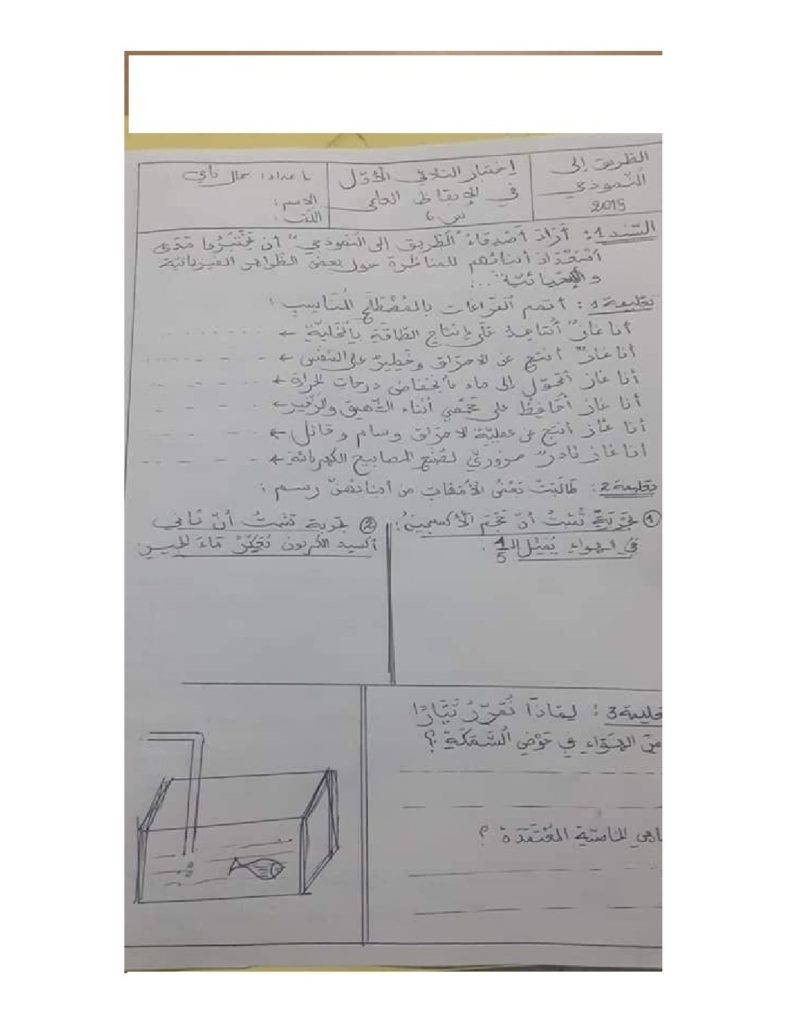 الطريق إلى
النموذجي
2018
إختبار الثلاثي الأوّل
في الإيقاظ العلمي
س 6
بإعداد:
الإسم:
اللقب:
السّند 1: أَرَادَ أَصْدِقَاءُ "الطّريق إلى النّموذجي" أن يَخْتَبِرُوا مَدَى
اسْتِعْدَادِ أبنائهم للمناظرة حول بعض الظواهر الفيزيائيّة
و
تعليمة 1: أتمم الفراغات بالمُصْطَلَحِ المُنَاسِبِ:
أنا غازٌ أُسَاعِدُ عَلَى إنتاج الطّاقَةِ بِالخَليّةِ ←
أنا غازٌ أنتج عن الاحتراق وخطير على التنفس ←
أنا غاز أتحوّل إلى ماء بانخفاض درجات الحرارة ←
أنا غاز أُحافِظُ على حَجْمِي أثناء الشّهيق والزّفير ←
أنا غاز أنتج عن عمليّة الاحتراق وسام وقاتل ←
أنا غاز نادر ضروريّ لصُنع المصابيح الكهربائيّة ←
تعليمة 2: طَالَبَتْ بَعْضُ الأمّهات من أبنائهنّ رسم:
① تجربَةً تُثْبِتُ أنّ حَجْمَ الأكسيجين
في الهواء يُمثّل الـ 1/5.
② تجربة تثبتُ أنّ ثاني
أكسيد الكربون يُعَكِّرُ مَاءَ الجير
تعليمة 3: لِمَاذَا نُمَرِّرُ تَيَّارًا
مِنَ الهَوَاءِ فِي حَوْضِ السَّمَكَةِ؟
ماهي الخاصيّة المُعْتَمَدَة؟